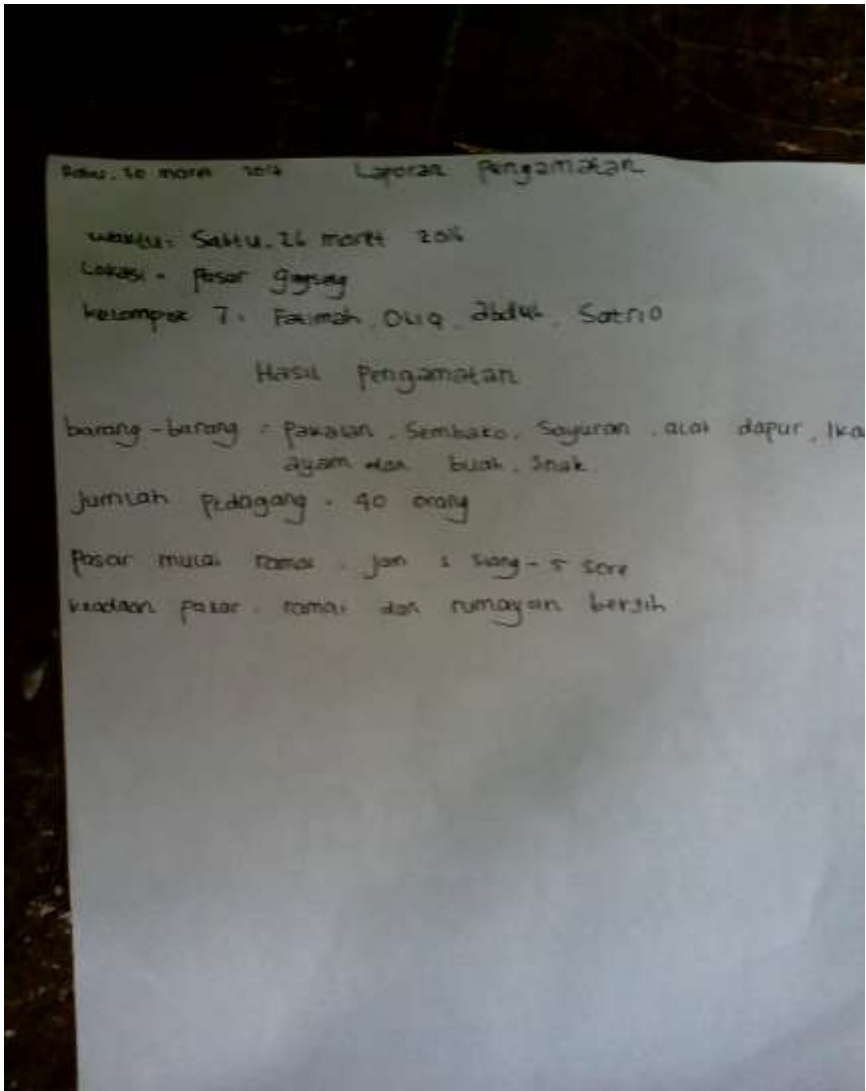 Rabu, 30 maret 2016 Laporan Pengamatan
waktu: Sabtu, 26 maret 2016
Lokasi: Pasar
kelompok 7: Fatimah, abdul, Satrio
Hasil Pengamatan
barang-barang: Pakaian, Sembako, Sayuran, alat dapur, Ika
ayam dan buah, Snak.
Jumlah Pedagang: 40 orang
Pasar mulai ramai: jam siang - 5 sore
keadaan pasar: ramai dan rumayan bersih